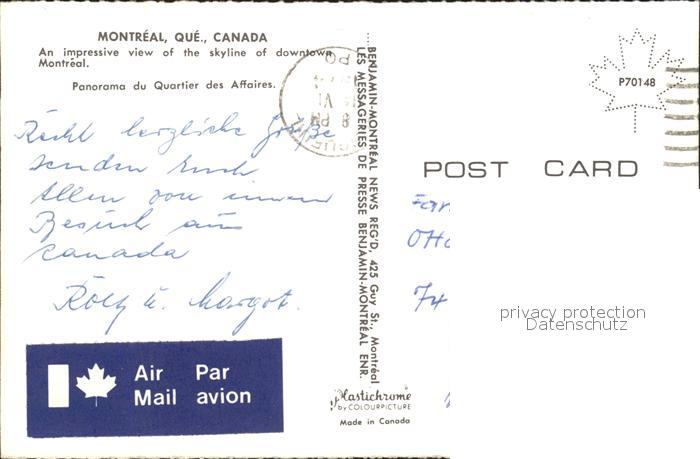 MONTRÉAL, QUÉ., CANADA
An impressive view of the skyline of downtown
Montréal.
Panorama du Quartier des Affaires.
Recht herzliche Grüße
senden Euch
Allen von
Besuch aus
Canada
Rolf u. Margot.
Air Par
Mail avion
BENJAMIN-MONTRÉAL NEWS REG'D, 425 Guy St., Montréal
LES MESSAGERIES DE PRESSE BENJAMIN-MONTRÉAL ENR.
Plastichrome
by COLOURPICTURE
Made in Canada
P70148
POST CARD
PM
VI
PO
74
privacy protection
Datenschutz